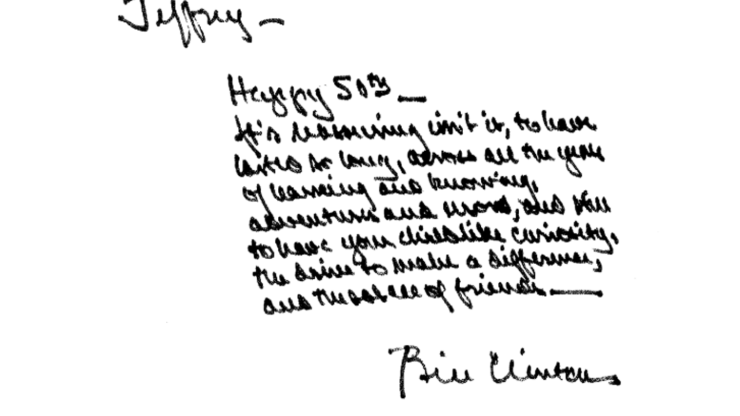 Jeffrey —
Happy 50th —
It's reassuring isn't it, to have
lasted as long, across all the years
of learning and knowing,
adventures and        , and still
to have your childlike curiosity,
the drive to make a difference,
and the solace of friends. —
Bill Clinton